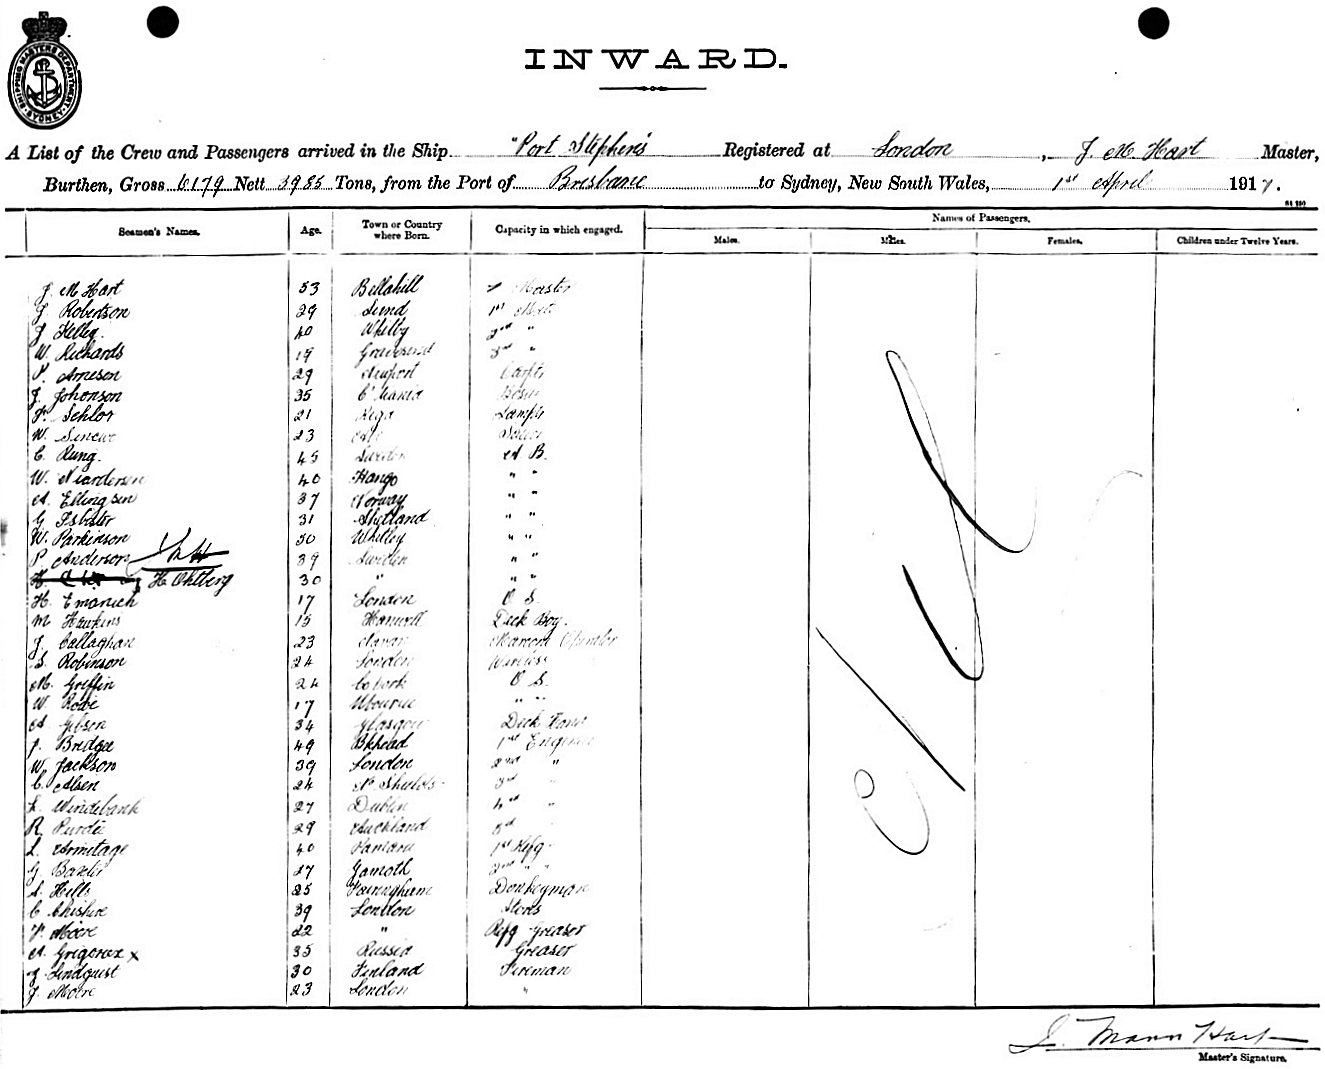 SHIPPING MASTERS DEPARTMENT SYDNEY
INWARD.
A List of the Crew and Passengers arrived in the Ship "Port Stephens Registered at London, J. M. Hart Master,
Burthen, Gross 6179 Nett 3985 Tons, from the Port of Brisbane to Sydney, New South Wales, 1st April 1917.
Names of Passengers.
Seamen's Names. Age. Town or Country where Born. Capacity in which engaged. Males. Males. Females. Children under Twelve Years.
J. M Hart 53 Master
J. Robertson 29 1st Mate
J Kelley. 40 Whitby 2nd "
W. Richards 19 Gravesend 3rd "
P. Arnesen 29 Newport Carptr
J. Johonson 35 C'hania Bosun
F. Sehlor 21 Riga Lamps
W. 23
C. Rung. 45 Sweden A B.
W. 40 Hango " "
A. Ellingsen 37 Norway " "
G Isbister 31 Shetland " "
W. Parkinson 50 Whitley " "
P Anderson 39 Sweden " "
H. H. Ohlberg 30 " " "
H. Emanich 17 London O S.
M Hawkins 15 Hanwell Deck Boy.
J. Callaghan 23 Marconi Operator
S. Robinson 24 London Wireless
M. Griffin 24 O S.
W. Rowe 17 Mbourne " "
A Gibson 34 Glasgow
J. Bridge 49 Bkhead 1st Engineer
W. Jackson 39 London 2nd "
C. Olsen 24 No Shields 3rd "
Windebank 27 Dublin 4th "
R. Purdie 29 Auckland 5th "
L. Armitage 40 1st Refg
G Baxter 27 Yamoth 2nd " "
A. Hills 25 Donkeyman
C Cheshire 39 London Stores
F. Moore 22 " Refg Greaser
A. Grigorex x 35 Russia Greaser
J. Lindquist 30 Finland Fireman
J. Moore 23 London "
J. Mann Hart
Master's Signature.